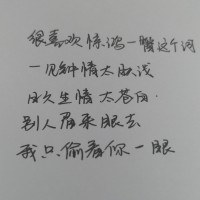 很喜欢惊鸿一瞥这个词
一见钟情太肤浅
日久生情太苍白
别人看来眼去
我只偷看你一眼